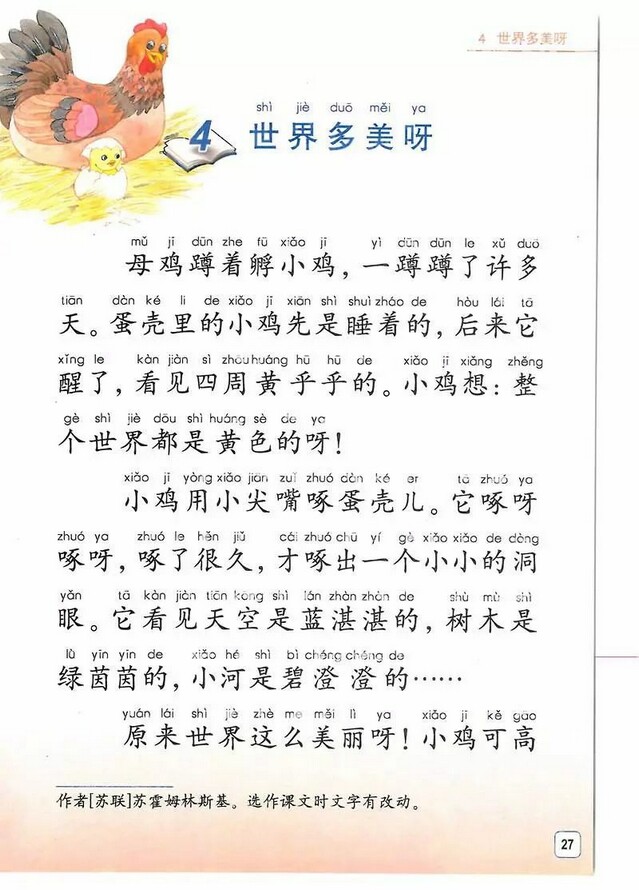 4 世界多美呀
shì jiè duō měi ya
4 世界多美呀
mǔ jī dūn zhe fū xiǎo jī yì dūn dūn le xǔ duō
母鸡蹲着孵小鸡，一蹲蹲了许多
tiān dàn ké li de xiǎo jī xiān shì shuì zháo de hòu lái tā
天。蛋壳里的小鸡先是睡着的，后来它
xǐng le kàn jiàn sì zhōu huáng hū hū de xiǎo jī xiǎng zhěng
醒了，看见四周黄乎乎的。小鸡想：整
gè shì jiè dōu shì huáng sè de ya
个世界都是黄色的呀！
xiǎo jī yòng xiǎo jiān zuǐ zhuó dàn ké er tā zhuó ya
小鸡用小尖嘴啄蛋壳儿。它啄呀
zhuó ya zhuó le hěn jiǔ cái zhuó chū yí gè xiǎo xiǎo de dòng
啄呀，啄了很久，才啄出一个小小的洞
yǎn tā kàn jiàn tiān kōng shì lán zhàn zhàn de shù mù shì
眼。它看见天空是蓝湛湛的，树木是
lǜ yīn yīn de xiǎo hé shì bì chéng chéng de
绿茵茵的，小河是碧澄澄的……
yuán lái shì jiè zhè me měi lì ya xiǎo jī kě gāo
原来世界这么美丽呀！小鸡可高
作者[苏联]苏霍姆林斯基。选作课文时文字有改动。
27